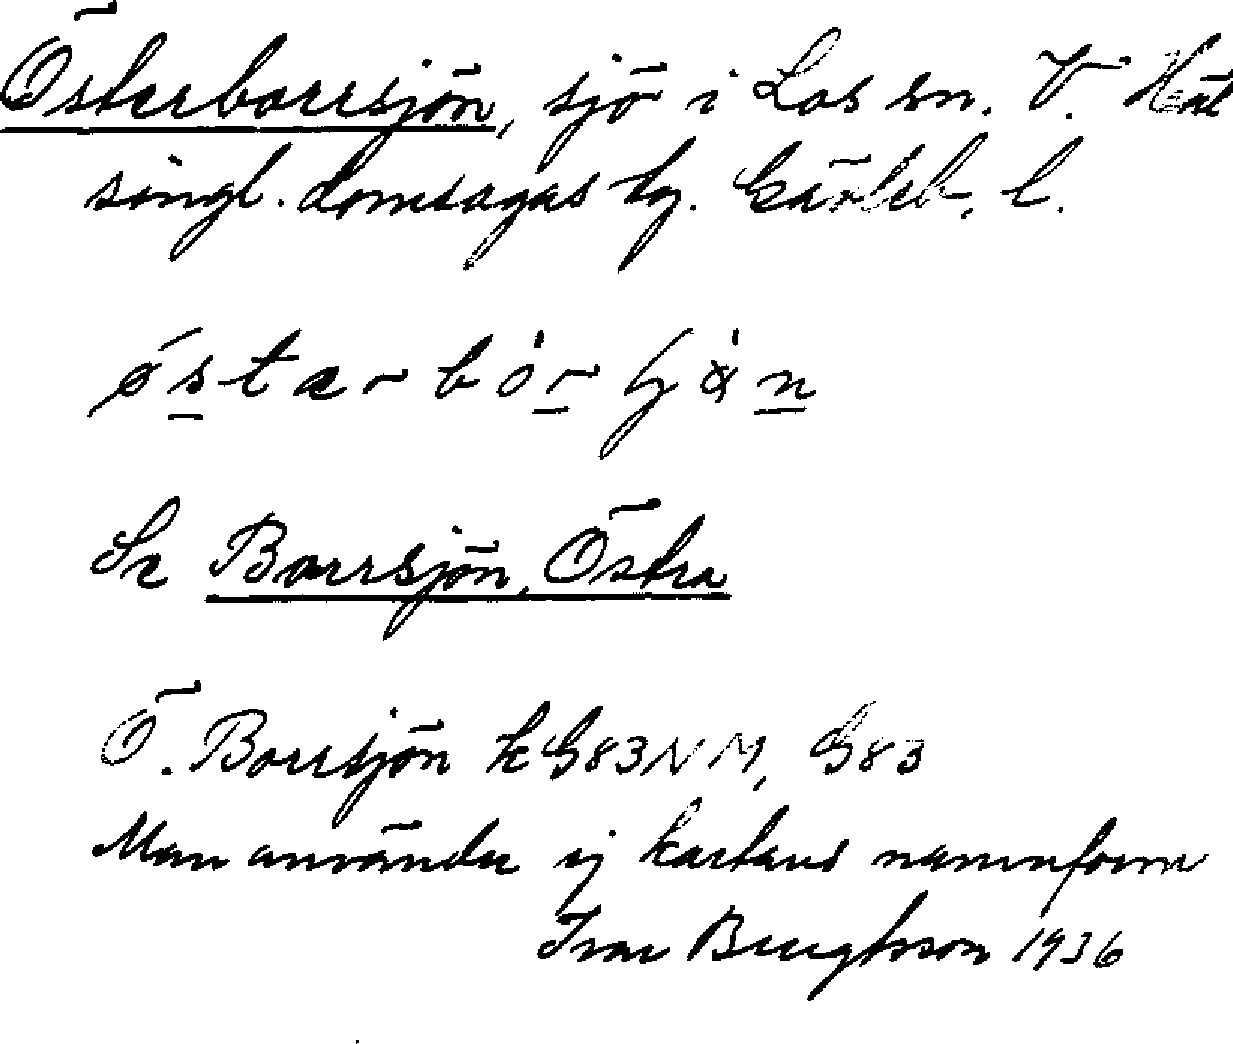 Österborrsjön, sjö i Los sn. V. Häl
singl. domsagas tg. Gävleb. l.
östarbórʃön
Se Borrsjön, Östra
Ö. Borrsjön k G83NM, G83
Man använder ej kartans namnform
Ivar Bengtsson 1936